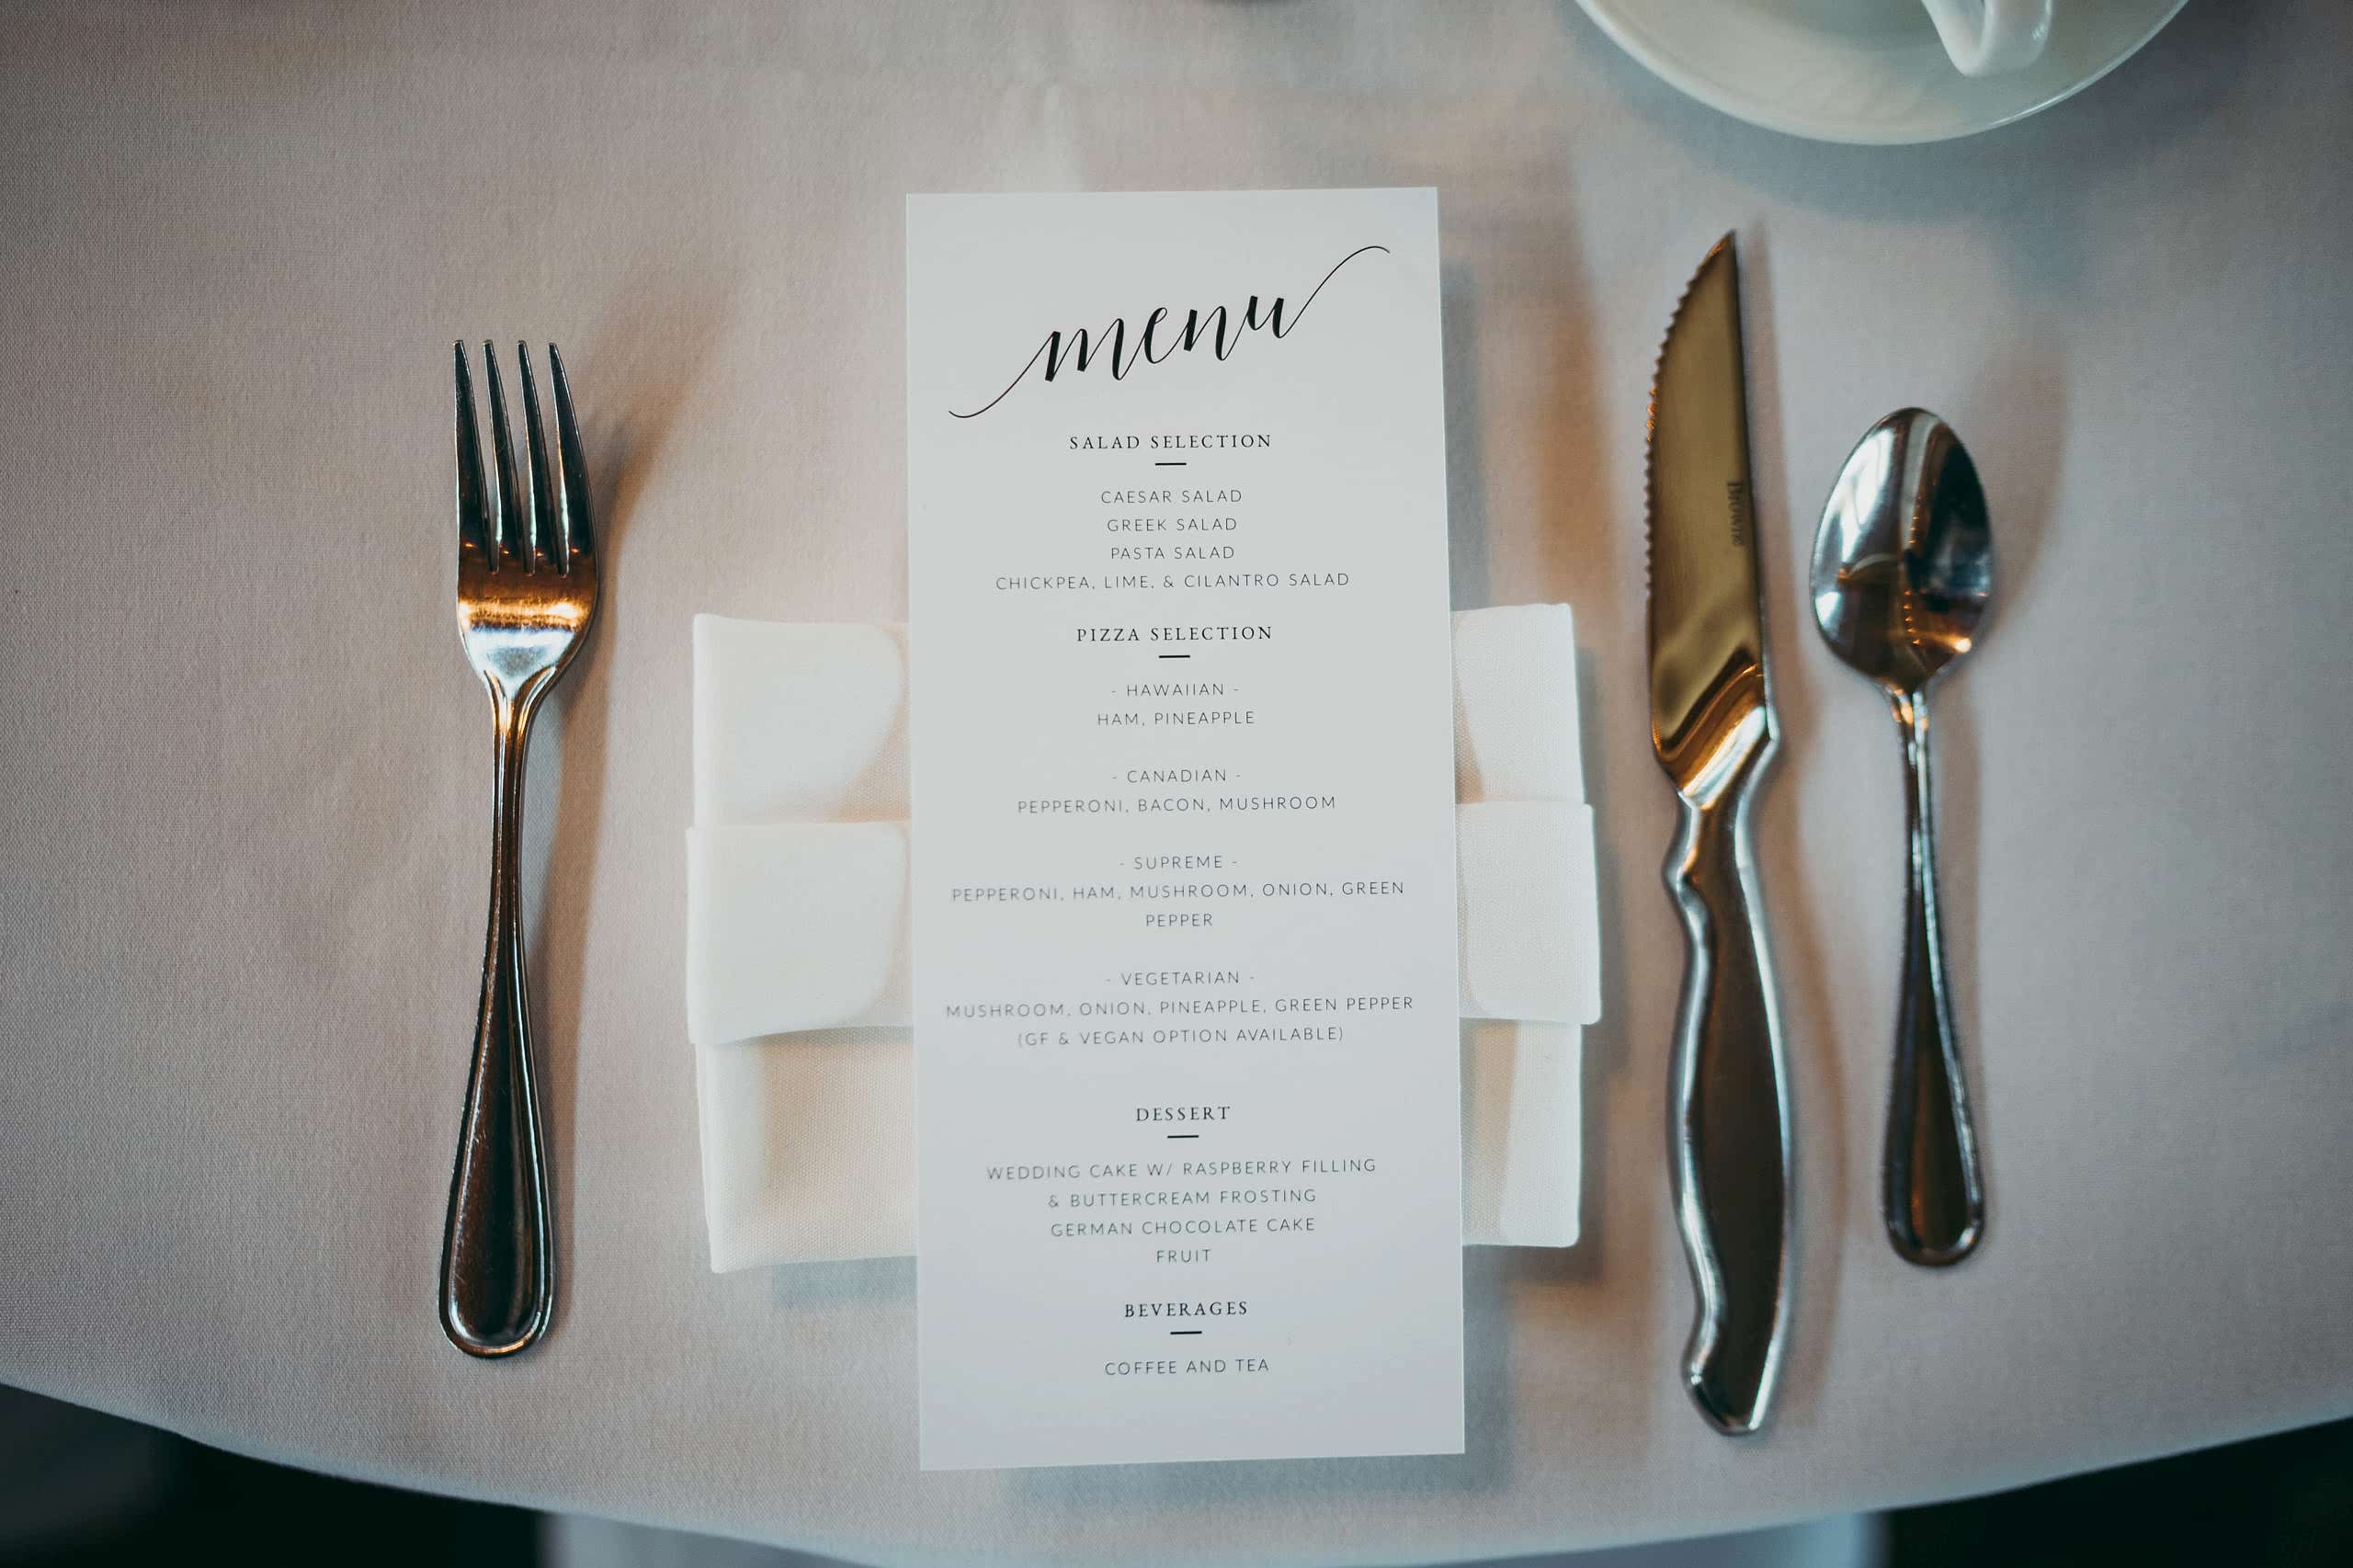 menu
SALAD SELECTION
CAESAR SALAD
GREEK SALAD
PASTA SALAD
CHICKPEA, LIME, & CILANTRO SALAD
PIZZA SELECTION
- HAWAIIAN -
HAM, PINEAPPLE
- CANADIAN -
PEPPERONI, BACON, MUSHROOM
- SUPREME -
PEPPERONI, HAM, MUSHROOM, ONION, GREEN
PEPPER
- VEGETARIAN -
MUSHROOM, ONION, PINEAPPLE, GREEN PEPPER
(GF & VEGAN OPTION AVAILABLE)
DESSERT
WEDDING CAKE W/ RASPBERRY FILLING
& BUTTERCREAM FROSTING
GERMAN CHOCOLATE CAKE
FRUIT
BEVERAGES
COFFEE AND TEA
Browne